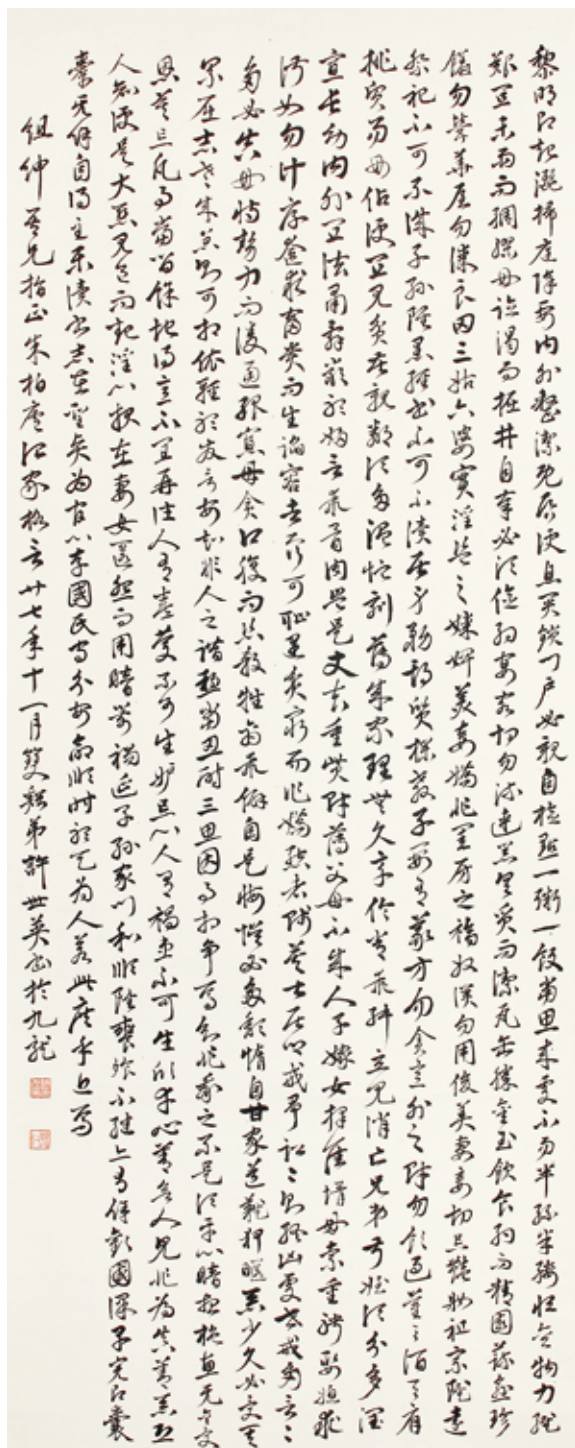 黎明即起灑掃庭除要內外整潔既昏便息關鎖門戶必親自檢點一粥一飯當思來處不易半絲半縷恒念物力維
艱宜未雨而綢繆毋臨渴而掘井自奉必須儉約宴客切勿流連器具質而潔瓦缶勝金玉飲食約而精園蔬愈珍
饈勿營華屋勿謀良田三姑六婆實淫盜之媒婢美妾嬌非閨房之福奴僕勿用俊美妻妾切忌艷妝祖宗雖遠
祭祀不可不誠子孫雖愚經書不可不讀居身務期質樸教子要有義方勿貪意外之財勿飲過量之酒與肩
挑貿易毋佔便宜見貧苦親鄰須多溫恤刻薄成家理無久享倫常乖舛立見消亡兄弟叔姪須分多潤
寡長幼內外宜法肅辭嚴聽婦言乖骨肉豈是丈夫重資財薄父母不成人子嫁女擇佳婿毋索重聘娶媳求
淑女勿計厚奩見富貴而生諂容者最可恥遇貧窮而作驕態者賤莫甚居家戒爭訟訟則終凶處世戒多言言
多必失毋恃勢力而凌逼孤寡毋貪口腹而恣殺牲禽乖僻自是悔悞必多頹惰自甘家道難狎暱惡少久必受其
累屈志老成急則可相依輕聽發言安知非人之譖愬當忍耐三思因事相爭焉知非我之不是須平心暗想施惠無念受
恩莫忘凡事當留餘地得意不宜再往人有喜慶不可生妒忌心人有禍患不可生欣幸心善欲人見非為真善惡恐
人知便是大惡見色而起淫心報在妻女匿怨而用暗箭禍延子孫家門和順雖饔飧不繼亦有餘歡國課早完即囊
橐無餘自得至樂讀書志在聖賢為官心存國民守分安命順時聽天為人若此庶乎近焉
組紳吾兄指正朱柏廬治家格言卅七年十一月雙谿弟許世英書於九龍